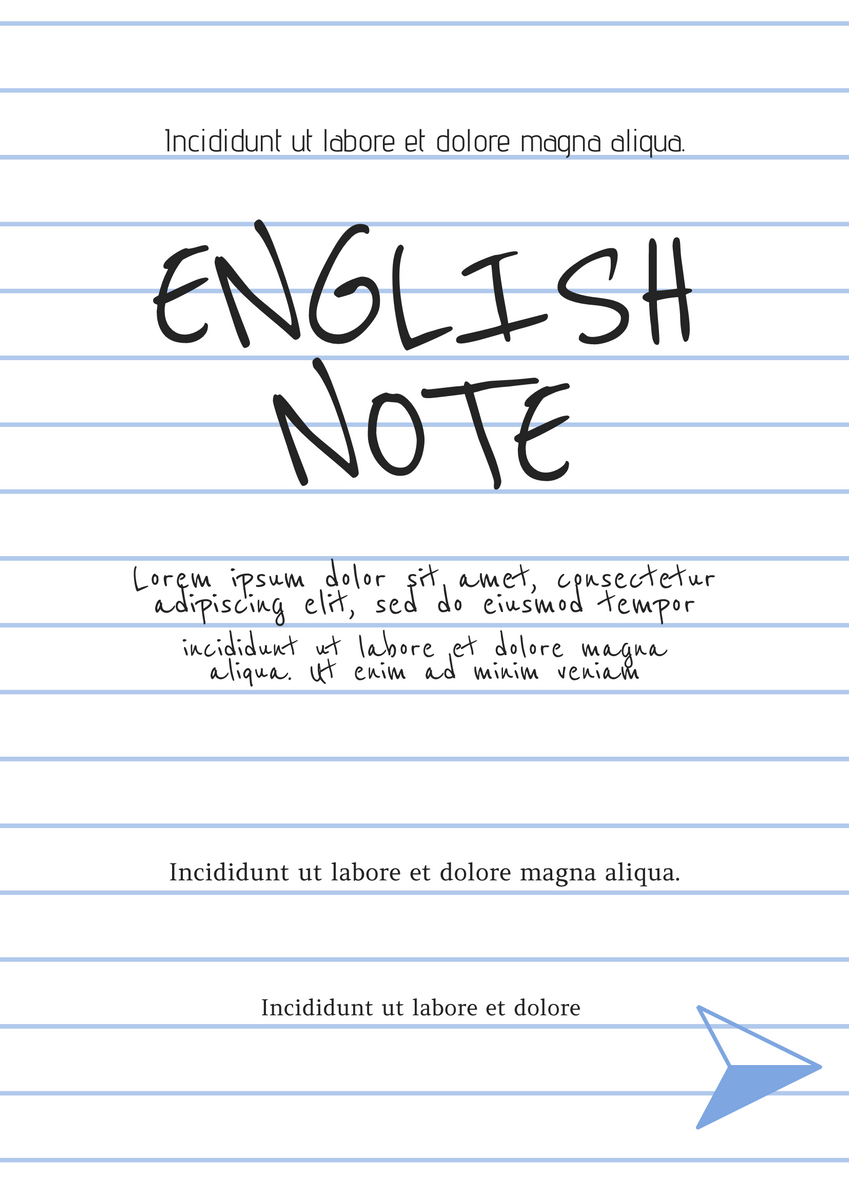 Incididunt ut labore et dolore magna aliqua.
ENGLISH
NOTE
Lorem ipsum dolor sit amet, consectetur
adipiscing elit, sed do eiusmod tempor
incididunt ut labore et dolore magna
aliqua. Ut enim ad minim veniam
Incididunt ut labore et dolore magna aliqua.
Incididunt ut labore et dolore